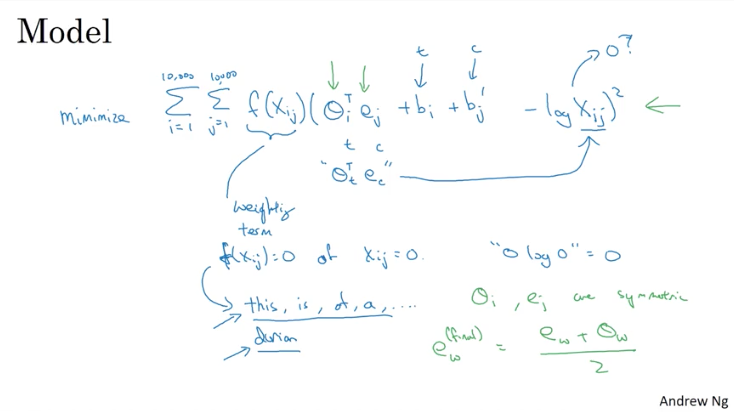 Model
t c 0?
minimize 10,000 Σ i=1 10,000 Σ j=1 f(Xij) ( θi^T ej + bi + bj' - log Xij )^2 ←
t c
"θt^T ec"
weighting
term
f(Xij) = 0 if Xij = 0. "0 log 0" = 0
this, is, of, a, .... θi, ej are symmetric
durian
ew^(final) = (ew + θw) / 2
Andrew Ng